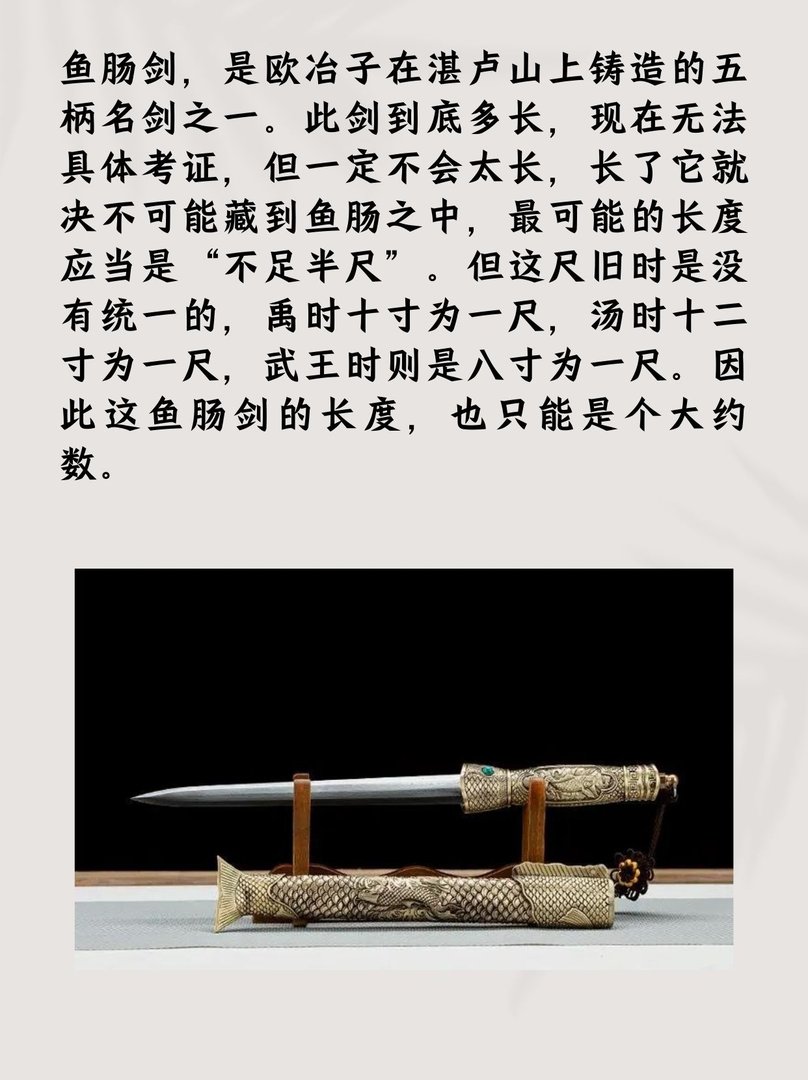 鱼肠剑，是欧冶子在湛卢山上铸造的五
柄名剑之一。此剑到底多长，现在无法
具体考证，但一定不会太长，长了它就
决不可能藏到鱼肠之中，最可能的长度
应当是“不足半尺”。但这尺旧时是没
有统一的，禹时十寸为一尺，汤时十二
寸为一尺，武王时则是八寸为一尺。因
此这鱼肠剑的长度，也只能是个大约
数。